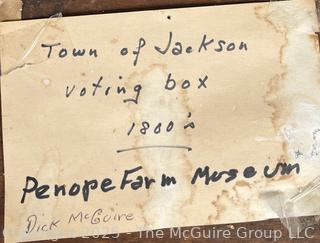 Town of Jackson
voting box
1800's
Penope Farm Museum
Dick McGuire
2025 The McGuire Group LLC